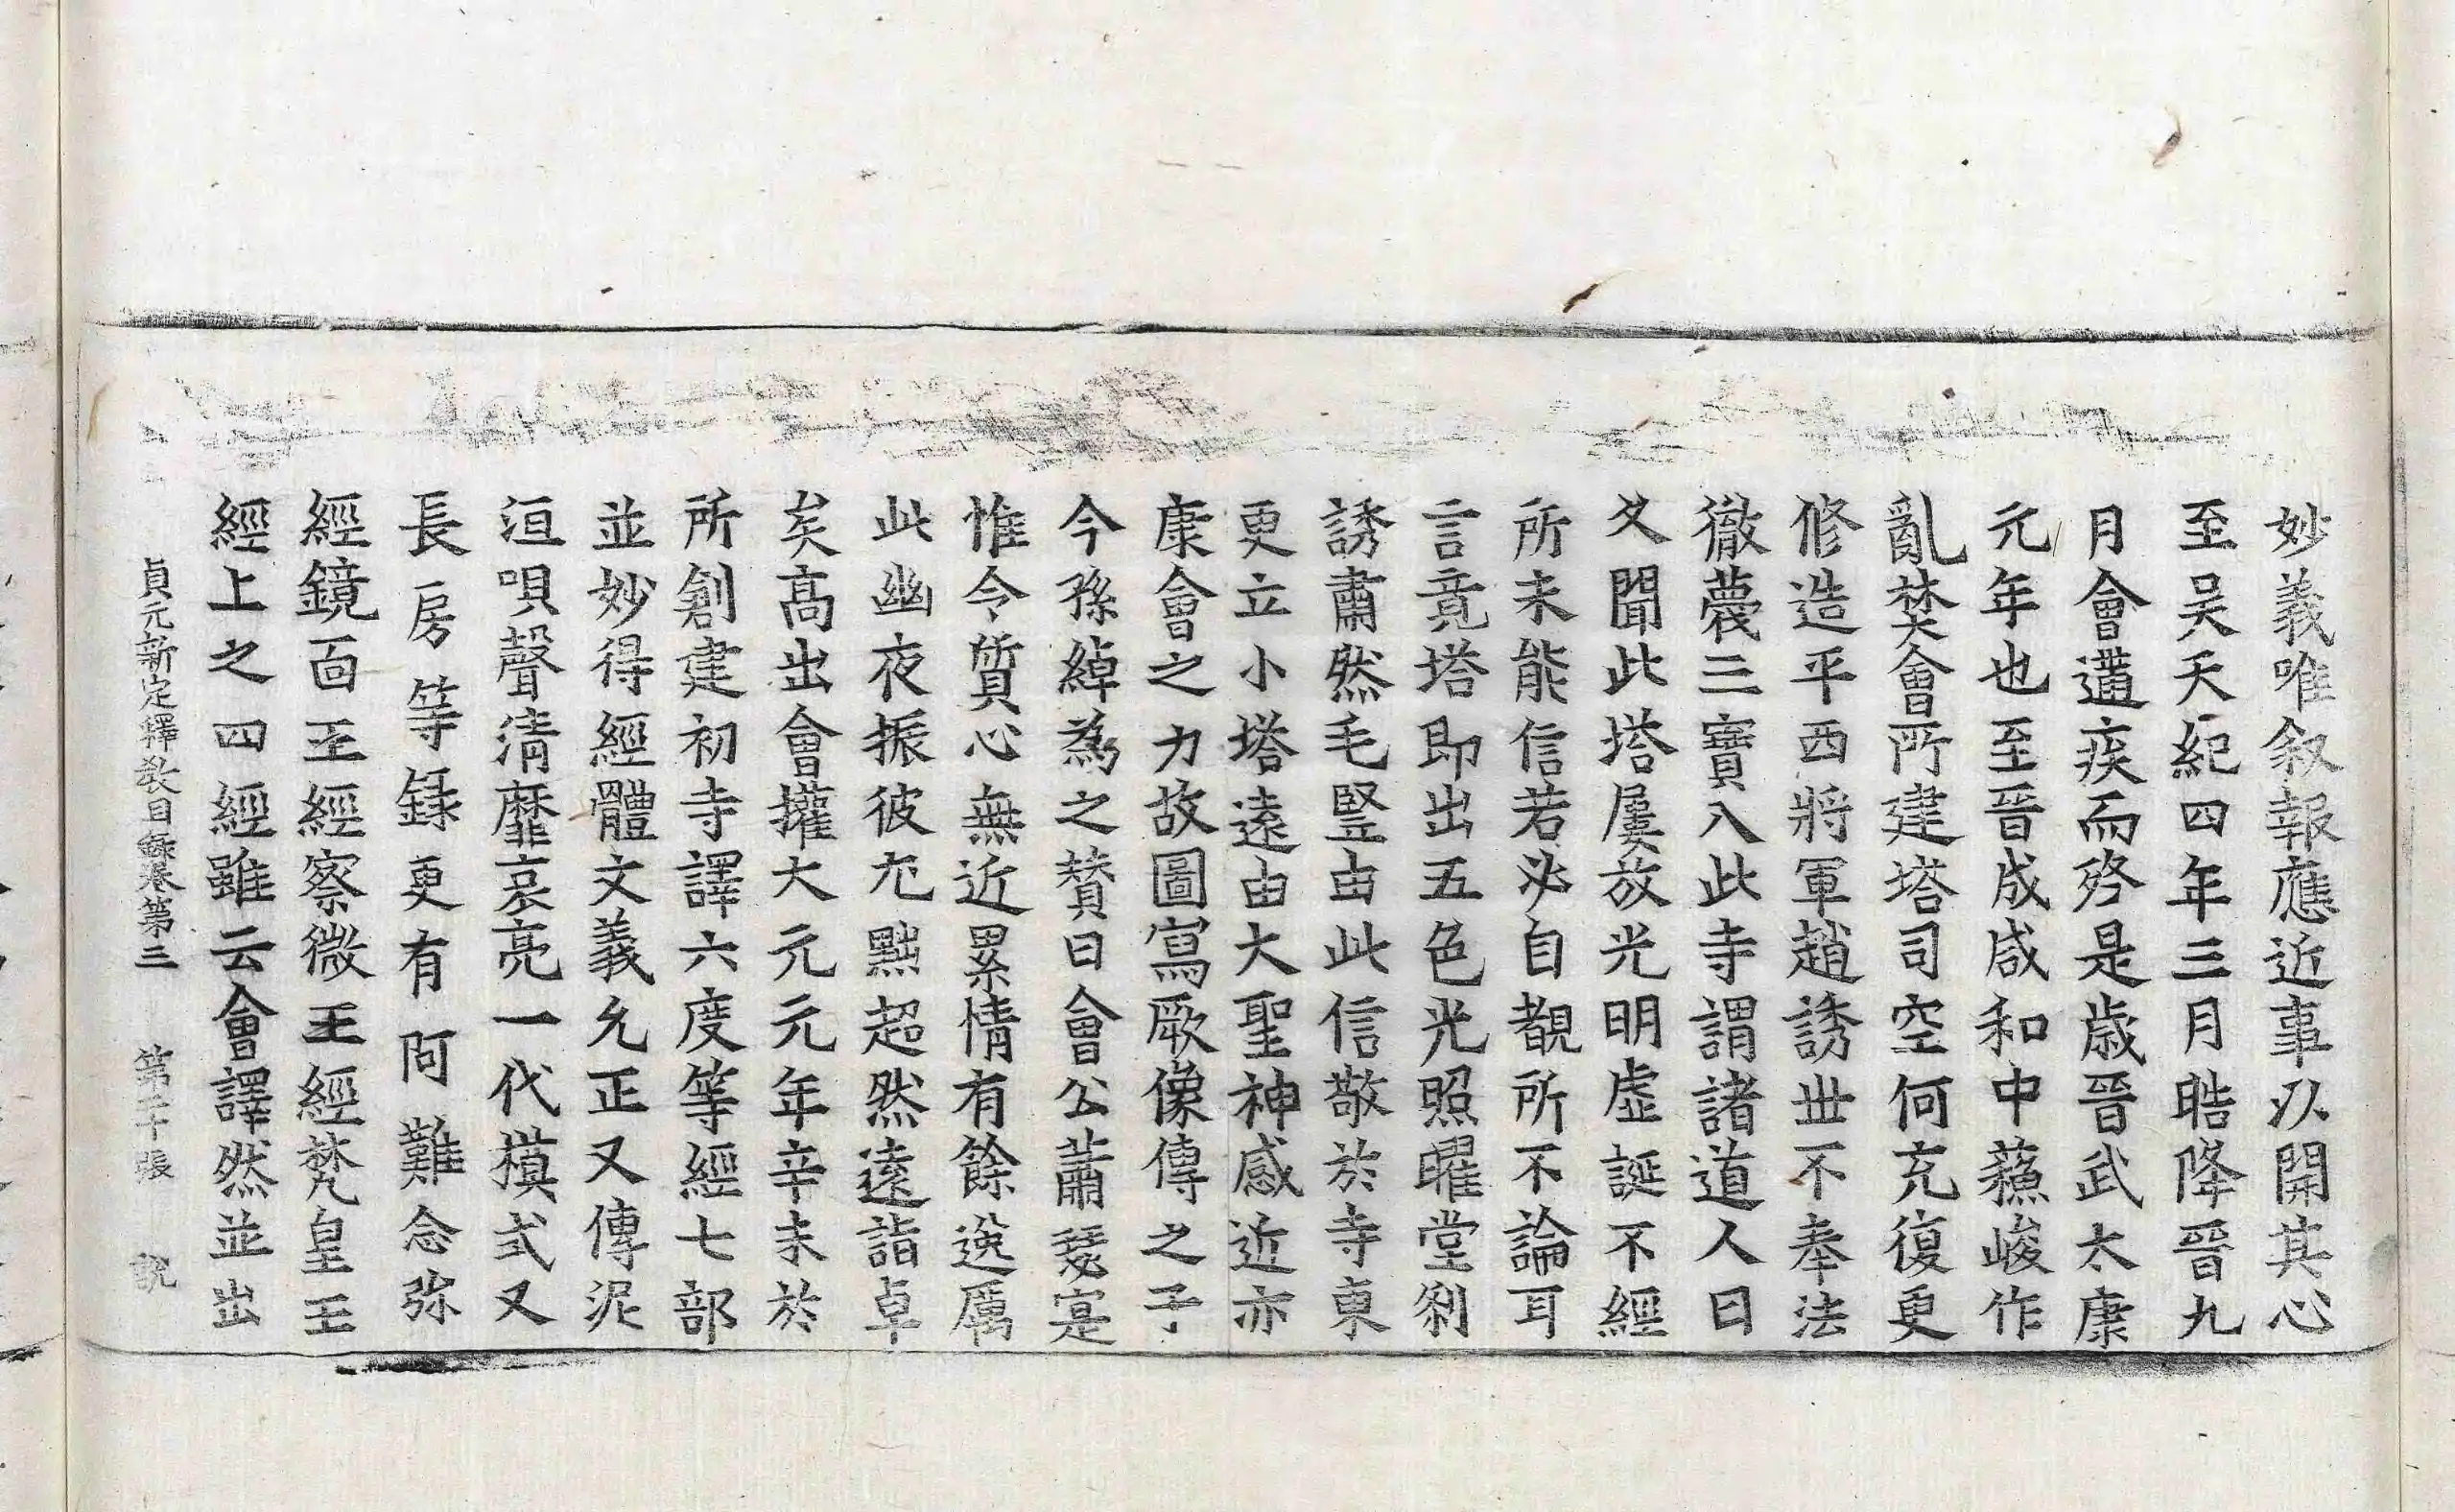 妙義唯叙報應近事以開其心
至吴天紀四年三月晧降晉九
月會遘疾而終是歳晉武太康
元年也至晉成咸和中蘓峻作
亂焚會所建塔司空何充復更
修造平西將軍趙誘丗不奉法
慠蔑三寶入此寺謂諸道人曰
乆聞此塔屢放光明虛誕不經
所未能信若必自覩所不論耳
言竟塔即出五色光照曜堂刹
誘肅然毛竪由此信敬於寺東
更立小塔逺由大聖神感近亦
康會之力故圖寫厥像傳之于
今孫綽為之賛曰會公蕭瑟寔
惟令質心無近累情有餘逸厲
此幽夜振彼尤黜超然遠詣卓
矣高出會攉大元元年辛未於
所創建初寺譯六度等經七部
並妙得經體文義允正又傳泥
洹唄聲清靡哀亮一代摸式又
長房等録更有阿難念弥
經鏡面王經察微王經梵皇王
經上之四經雖云會譯然並出
貞元新定釋教目録卷第三　第二十張　說